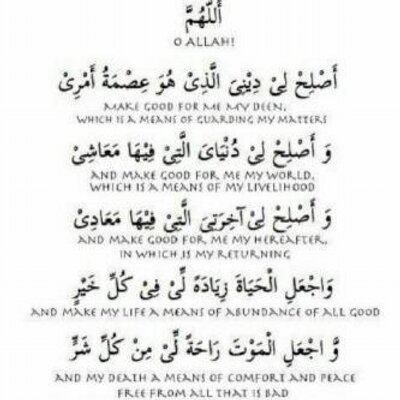 أَللّٰهُمَّ
O ALLAH!
أَصْلِحْ لِیْ دِیْنِیَ الَّذِیْ هُوَ عِصْمَةُ أَمْرِیْ
MAKE GOOD FOR ME MY DEEN,
WHICH IS A MEANS OF GUARDING MY MATTERS
وَ أَصْلِحْ لِیْ دُنْیَایَ الَّتِیْ فِیْهَا مَعَاشِیْ
AND MAKE GOOD FOR ME MY WORLD,
WHICH IS A MEANS OF MY LIVELIHOOD
وَ أَصْلِحْ لِیْ آخِرَتِیَ الَّتِیْ فِیْهَا مَعَادِیْ
AND MAKE GOOD FOR ME MY HEREAFTER,
IN WHICH IS MY RETURNING
وَاجْعَلِ الْحَیَاةَ زِیَادَةً لِّیْ فِیْ كُلِّ خَیْرٍ
AND MAKE MY LIFE A MEANS OF ABUNDANCE OF ALL GOOD
وَّ اجْعَلِ الْمَوْتَ رَاحَةً لِّیْ مِنْ كُلِّ شَرٍّ
AND MY DEATH A MEANS OF COMFORT AND PEACE
FREE FROM ALL THAT IS BAD